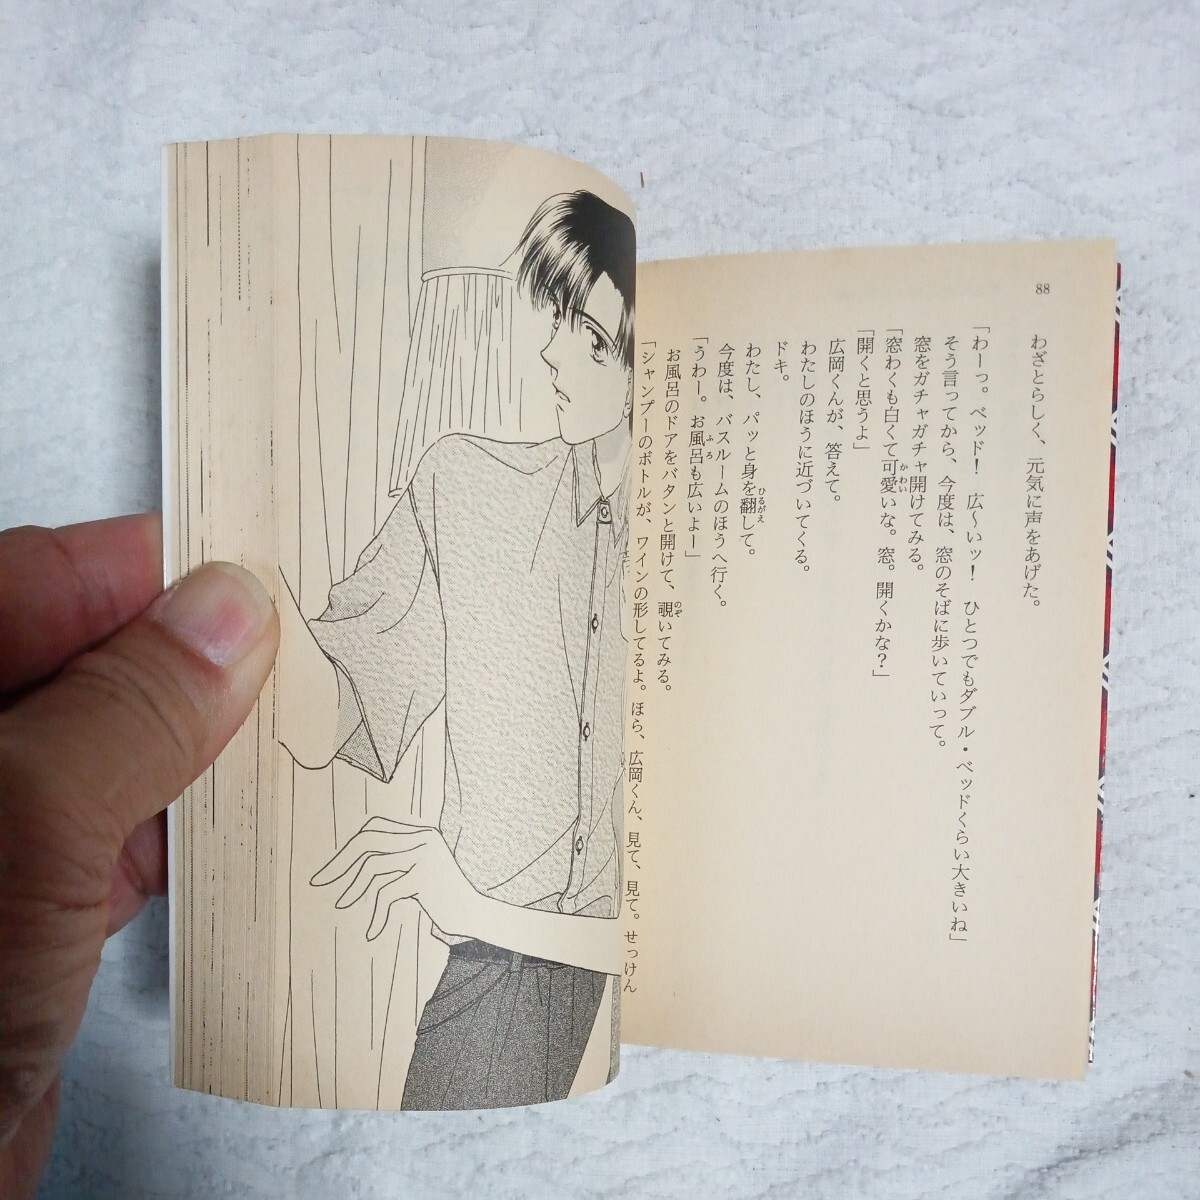 88
わざとらしく、元気に声をあげた。
「わーっ。ベッド！　広〜いッ！　ひとつでもダブル・ベッドくらい大きいね」
そう言ってから、今度は、窓のそばに歩いていって。
窓をガチャガチャ開けてみる。
「窓わくも白くて可愛いな。窓。開くかな？」
「開くと思うよ」
広岡くんが、答えて。
わたしのほうに近づいてくる。
ドキ。
わたし、パッと身を翻して。
今度は、バスルームのほうへ行く。
「うわー。お風呂も広いよー」
お風呂のドアをバタンと開けて、覗いてみる。
「シャンプーのボトルが、ワインの形してるよ。ほら、広岡くん、見て、見て。せっけん